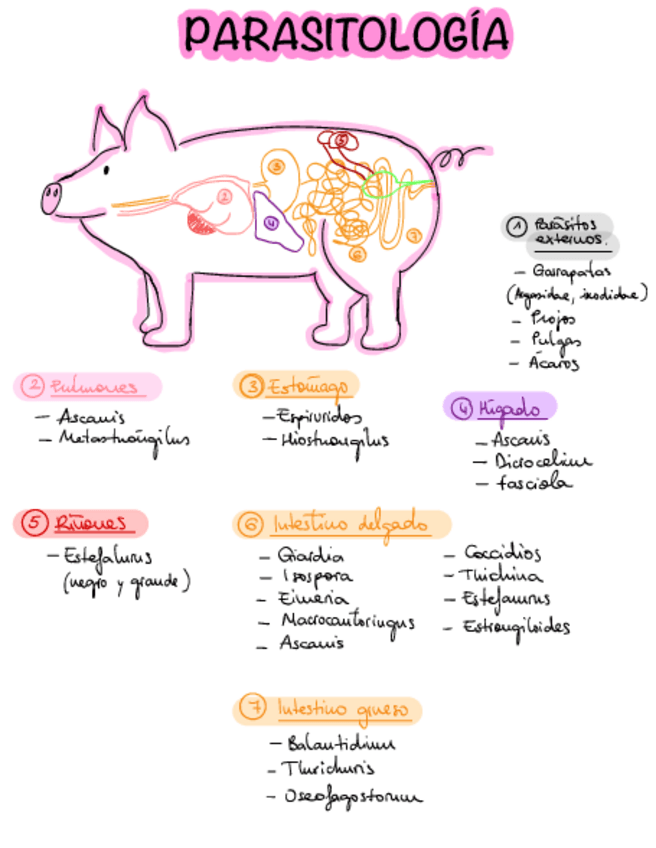 PARASITOLOGÍA
5
3
2
4
7
6
1 Parásitos
externos.
- Garrapatas
(Argasidae, ixodidae)
- Piojos
- Pulgas
- Ácaros
2 Pulmones
- Ascaris
- Metastrongilus
3 Estómago
- Espiruridos
- Hiostrongilus
4 Hígado
- Ascaris
- Dicrocelium
- fasciola
5 Riñones
- Estefalurus
(negro y grande)
6 Intestino delgado
- Giardia
- Isospora
- Eimeria
- Macrocantoringus
- Ascaris
- Coccidios
- Trichina
- Estefaurus
- Estrongiloides
7 Intestino grueso
- Balantidium
- Thrichuris
- Oseofagostomum